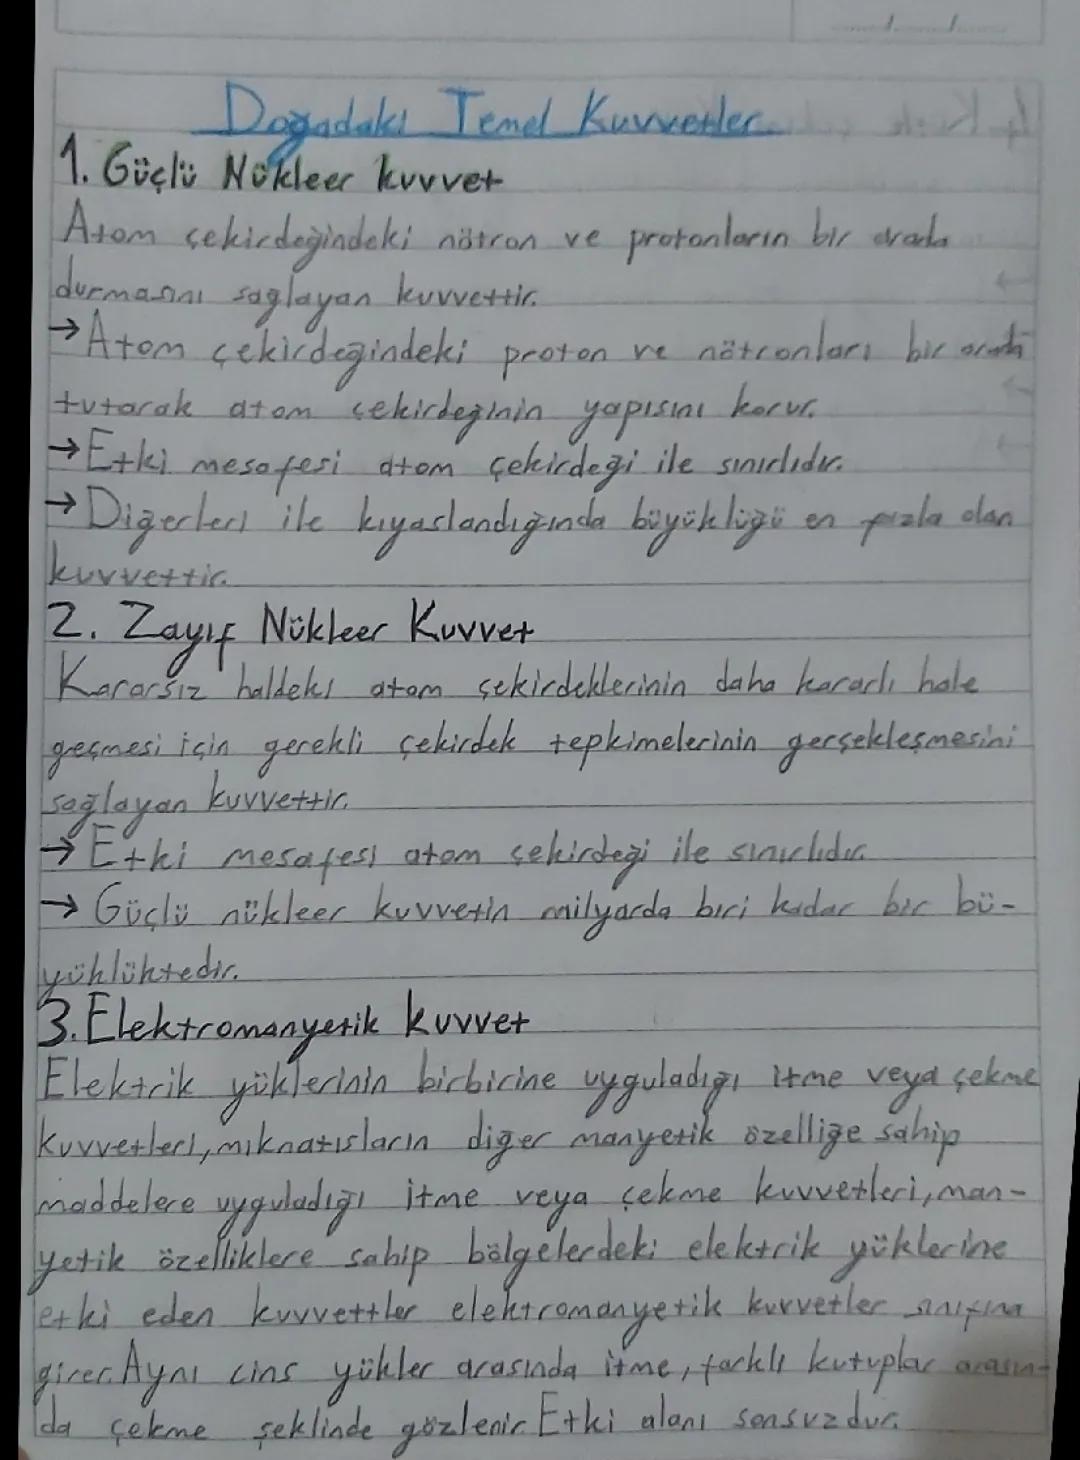 Doğadaki Temel Kuvvetler
1. Güçlü Nükleer kuvvet
Atom çekirdeğindeki nötron ve protonların bir arada
durmasını sağlayan kuvvettir.
→ Atom çekirdeğindeki proton ve nötronları bir arada
tutarak atom çekirdeğinin yapısını korur.
→ Etki mesafesi atom çekirdeği ile sınırlıdır.
→ Diğerleri ile kıyaslandığında büyüklüğü en fazla olan
kuvvettir.
2. Zayıf Nükleer Kuvvet
Kararsız haldeki atom çekirdeklerinin daha kararlı hale
geçmesi için gerekli çekirdek tepkimelerinin gerçekleşmesini
sağlayan kuvvettir.
→ Etki mesafesi atom çekirdeği ile sınırlıdır.
→ Güçlü nükleer kuvvetin milyarda biri kadar bir bü-
yüklüktedir.
3. Elektromanyetik kuvvet
Elektrik yüklerinin birbirine uyguladığı itme veya çekme
kuvvetleri, mıknatısların diğer manyetik özelliğe sahip
maddelere uyguladığı itme veya çekme kuvvetleri, man-
yetik özelliklere sahip bölgelerdeki elektrik yüklerine
etki eden kuvvettler elektromanyetik kuvvetler sınıfına
girer. Aynı cins yükler arasında itme, farklı kutuplar arasın-
da çekme şeklinde gözlenir. Etki alanı sonsuzdur.